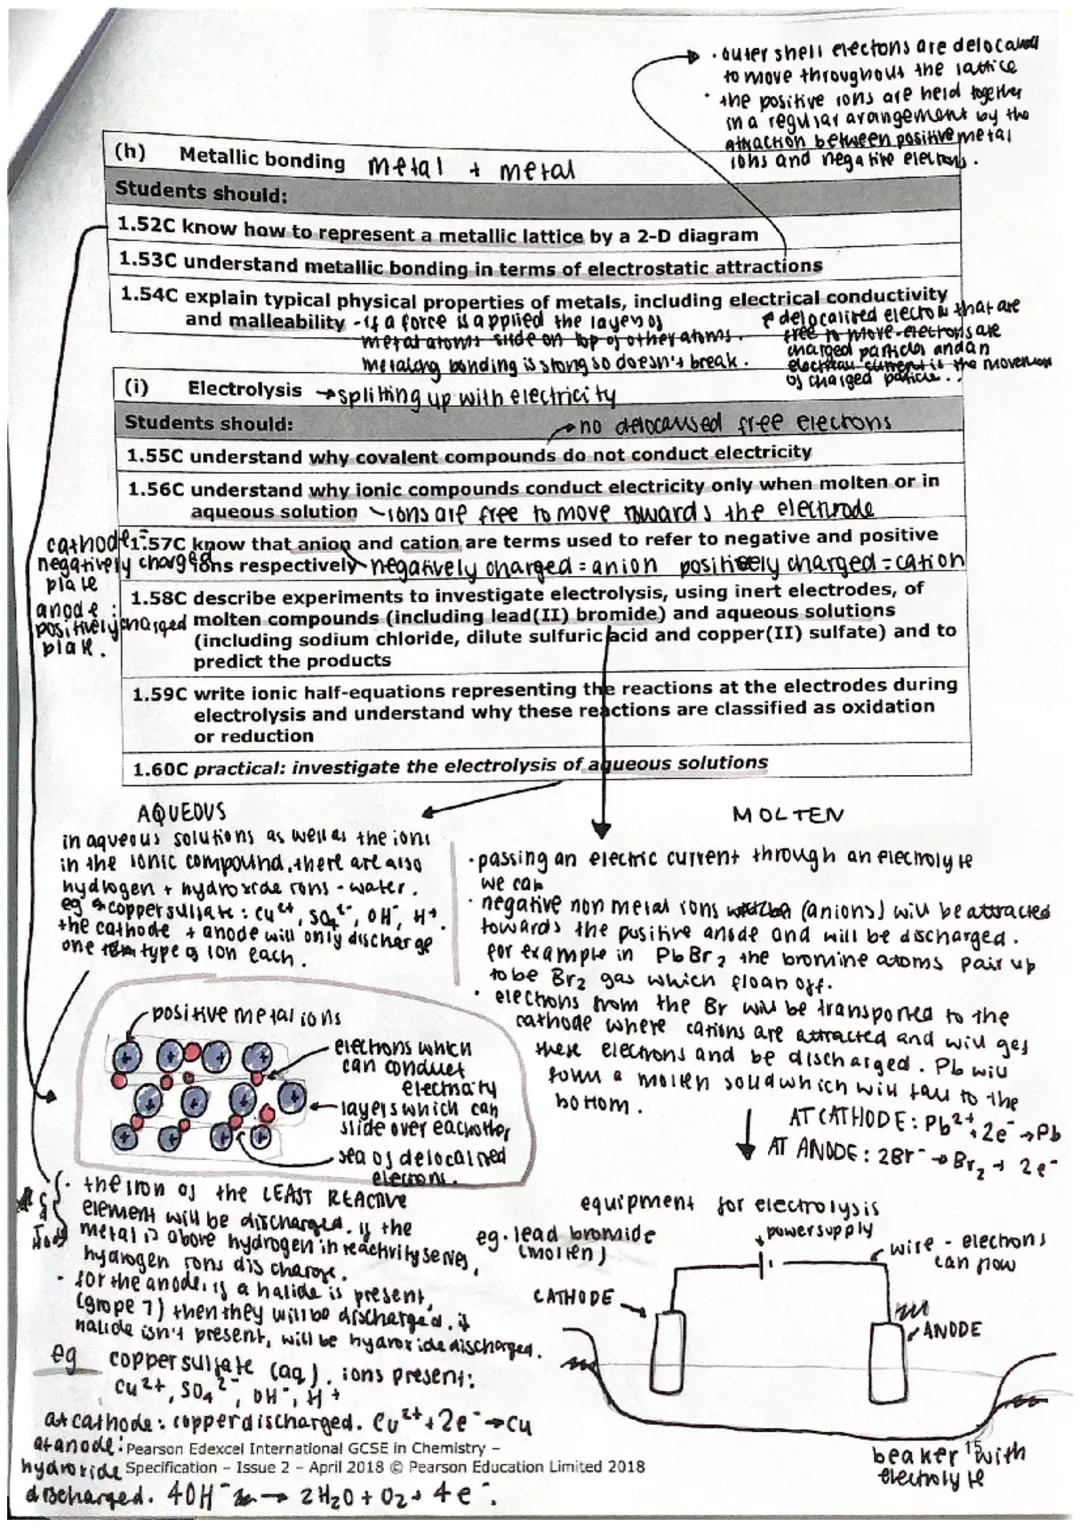 · outer shell electons are delocalised
to move throughout the lattice
· the positive ions are held together
in a regular arangement by the
attraction between positive metal
ions and negative electrons.
(h) Metallic bonding metal + metal
Students should:
1.52C know how to represent a metallic lattice by a 2-D diagram
1.53C understand metallic bonding in terms of electrostatic attractions
1.54C explain typical physical properties of metals, including electrical conductivity
and malleability - if a force is applied the layers of
metal atoms slide on top of other atoms.
metallic bonding is strong so doesn't break.
delocalised electrons that are
free to move - electrons are
charged particles and an
electrical current is the movement
of charged particle..
(i) Electrolysis → splitting up with electricity
Students should:
→ no delocalised free electrons
1.55C understand why covalent compounds do not conduct electricity
1.56C understand why ionic compounds conduct electricity only when molten or in
aqueous solution - ions are free to move towards the electrode
1.57C know that anion and cation are terms used to refer to negative and positive
ions respectively negatively charged = anion positively charged = cation
cathode =
negatively charged
plate
anode :
positively charged
plate.
1.58C describe experiments to investigate electrolysis, using inert electrodes, of
molten compounds (including lead(II) bromide) and aqueous solutions
(including sodium chloride, dilute sulfuric acid and copper(II) sulfate) and to
predict the products
1.59C write ionic half-equations representing the reactions at the electrodes during
electrolysis and understand why these reactions are classified as oxidation
or reduction
1.60C practical: investigate the electrolysis of aqueous solutions
AQUEOUS
in aqueous solutions as well as the ions
in the ionic compound, there are also
hydrogen + hydroxide ions - water.
eg copper sulfate : Cu²⁺, SO₄²⁻, OH⁻, H⁺.
the cathode + anode will only discharge
one type of ion each.
MOLTEN
· passing an electric current through an electrolyte
we can
· negative non metal ions (anions) will be attracted
towards the positive anode and will be discharged.
for example in PbBr₂ the bromine atoms pair up
to be Br₂ gas which float off.
· electrons from the Br will be transported to the
cathode where cations are attracted and will get
these electrons and be discharged. Pb will
form a molten solid which will fall to the
bottom.
AT CATHODE: Pb²⁺ + 2e⁻ → Pb
AT ANODE: 2Br⁻ → Br₂ + 2e⁻
positive metal ions
electrons which
can conduct
electricity
layers which can
slide over eachother
sea of delocalised
electrons.
· the iron of the LEAST REACTIVE
element will be discharged. if the
metal is above hydrogen in reactivity series,
hydrogen ions discharge.
· for the anode, if a halide is present,
(grope 7) then they will be discharged. if
halide isn't present, will be hydroxide discharged.
eg copper sulfate (aq). ions present:
Cu²⁺, SO₄²⁻, OH⁻, H⁺
at cathode: copper discharged. Cu²⁺ + 2e⁻ → Cu
at anode:
hydroxide
discharged. 4OH⁻ → 2H₂O + O₂ + 4e⁻.
equipment for electrolysis
eg. lead bromide
(molten)
powersupply
wire - electrons
can flow
CATHODE
ANODE
beaker with
electrolyte
Pearson Edexcel International GCSE in Chemistry –
Specification – Issue 2 – April 2018 © Pearson Education Limited 2018
15